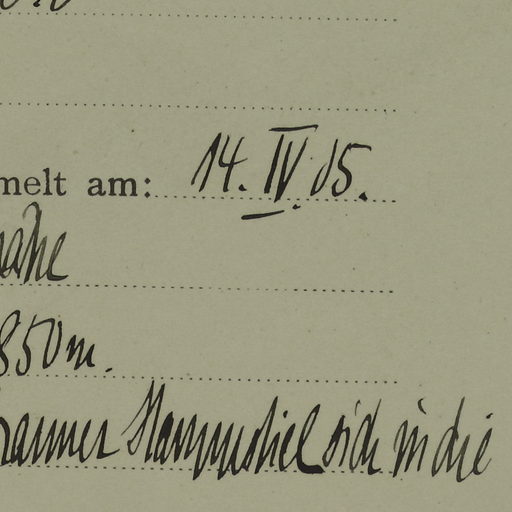 melt am: 14. IV. 05.
nahe
850 m.
brauner Stamm, stiel sich in die